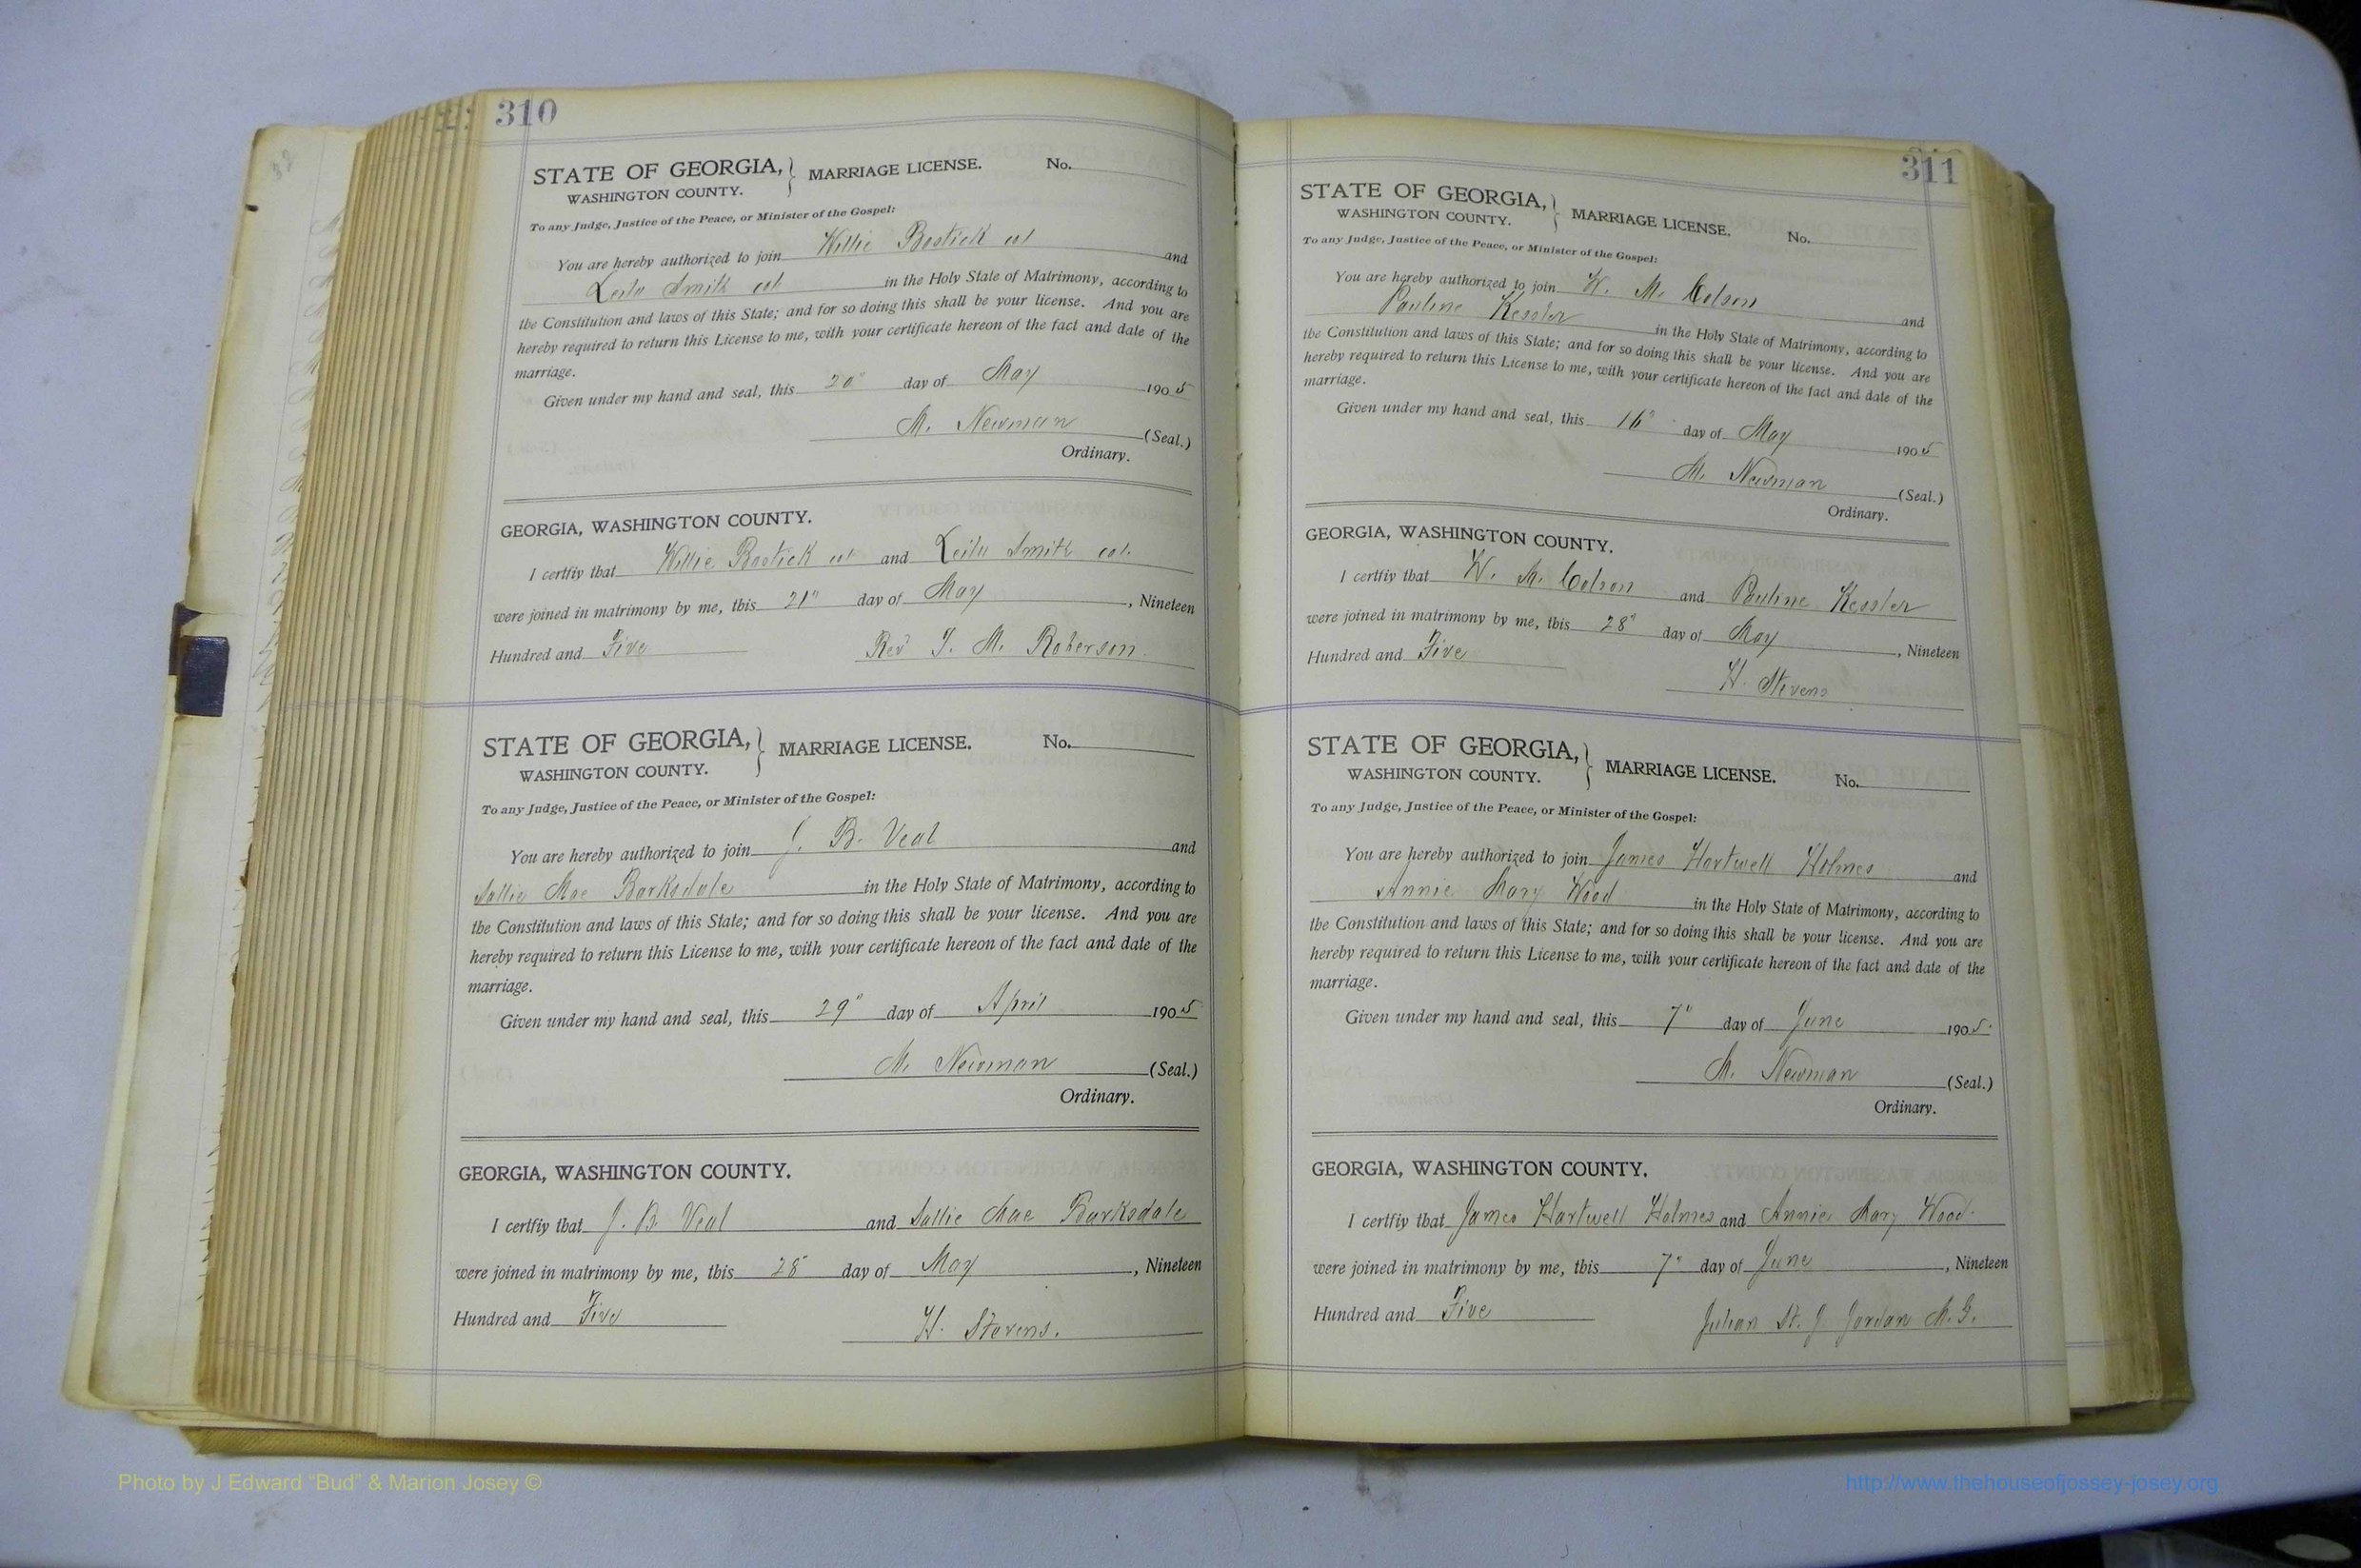 310
STATE OF GEORGIA, } MARRIAGE LICENSE. No.
WASHINGTON COUNTY.
To any Judge, Justice of the Peace, or Minister of the Gospel:
You are hereby authorized to join Willie Bostick col and
Leila Smith col in the Holy State of Matrimony, according to
the Constitution and laws of this State; and for so doing this shall be your license. And you are
hereby required to return this License to me, with your certificate hereon of the fact and date of the
marriage.
Given under my hand and seal, this 20" day of May 1905
M. Newman (Seal.)
Ordinary.
GEORGIA, WASHINGTON COUNTY.
I certfiy that Willie Bostick col and Leila Smith col.
were joined in matrimony by me, this 21" day of May, Nineteen
Hundred and Five Rev T. M. Roberson.
STATE OF GEORGIA, } MARRIAGE LICENSE. No.
WASHINGTON COUNTY.
To any Judge, Justice of the Peace, or Minister of the Gospel:
You are hereby authorized to join J. B. Veal and
Sallie Mae Barksdale in the Holy State of Matrimony, according to
the Constitution and laws of this State; and for so doing this shall be your license. And you are
hereby required to return this License to me, with your certificate hereon of the fact and date of the
marriage.
Given under my hand and seal, this 29" day of April 1905
M. Newman (Seal.)
Ordinary.
GEORGIA, WASHINGTON COUNTY.
I certfiy that J. B. Veal and Sallie Mae Barksdale
were joined in matrimony by me, this 28" day of May, Nineteen
Hundred and Five H. Stevens.
311
STATE OF GEORGIA, } MARRIAGE LICENSE. No.
WASHINGTON COUNTY.
To any Judge, Justice of the Peace, or Minister of the Gospel:
You are hereby authorized to join W. M. Colson and
Pauline Kessler in the Holy State of Matrimony, according to
the Constitution and laws of this State; and for so doing this shall be your license. And you are
hereby required to return this License to me, with your certificate hereon of the fact and date of the
marriage.
Given under my hand and seal, this 16" day of May 1905
M. Newman (Seal.)
Ordinary.
GEORGIA, WASHINGTON COUNTY.
I certfiy that W. M. Colson and Pauline Kessler
were joined in matrimony by me, this 28" day of May, Nineteen
Hundred and Five
H. Stevens
STATE OF GEORGIA, } MARRIAGE LICENSE. No.
WASHINGTON COUNTY.
To any Judge, Justice of the Peace, or Minister of the Gospel:
You are hereby authorized to join James Hartwell Holmes and
Annie Mary Wood in the Holy State of Matrimony, according to
the Constitution and laws of this State; and for so doing this shall be your license. And you are
hereby required to return this License to me, with your certificate hereon of the fact and date of the
marriage.
Given under my hand and seal, this 7" day of June 1905.
M. Newman (Seal.)
Ordinary.
GEORGIA, WASHINGTON COUNTY.
I certfiy that James Hartwell Holmes and Annie Mary Wood.
were joined in matrimony by me, this 7" day of June, Nineteen
Hundred and Five Julian St. J Jordan M.G.
Photo by J Edward “Bud” & Marion Josey ©
http://www.thehouseofjossey-josey.org